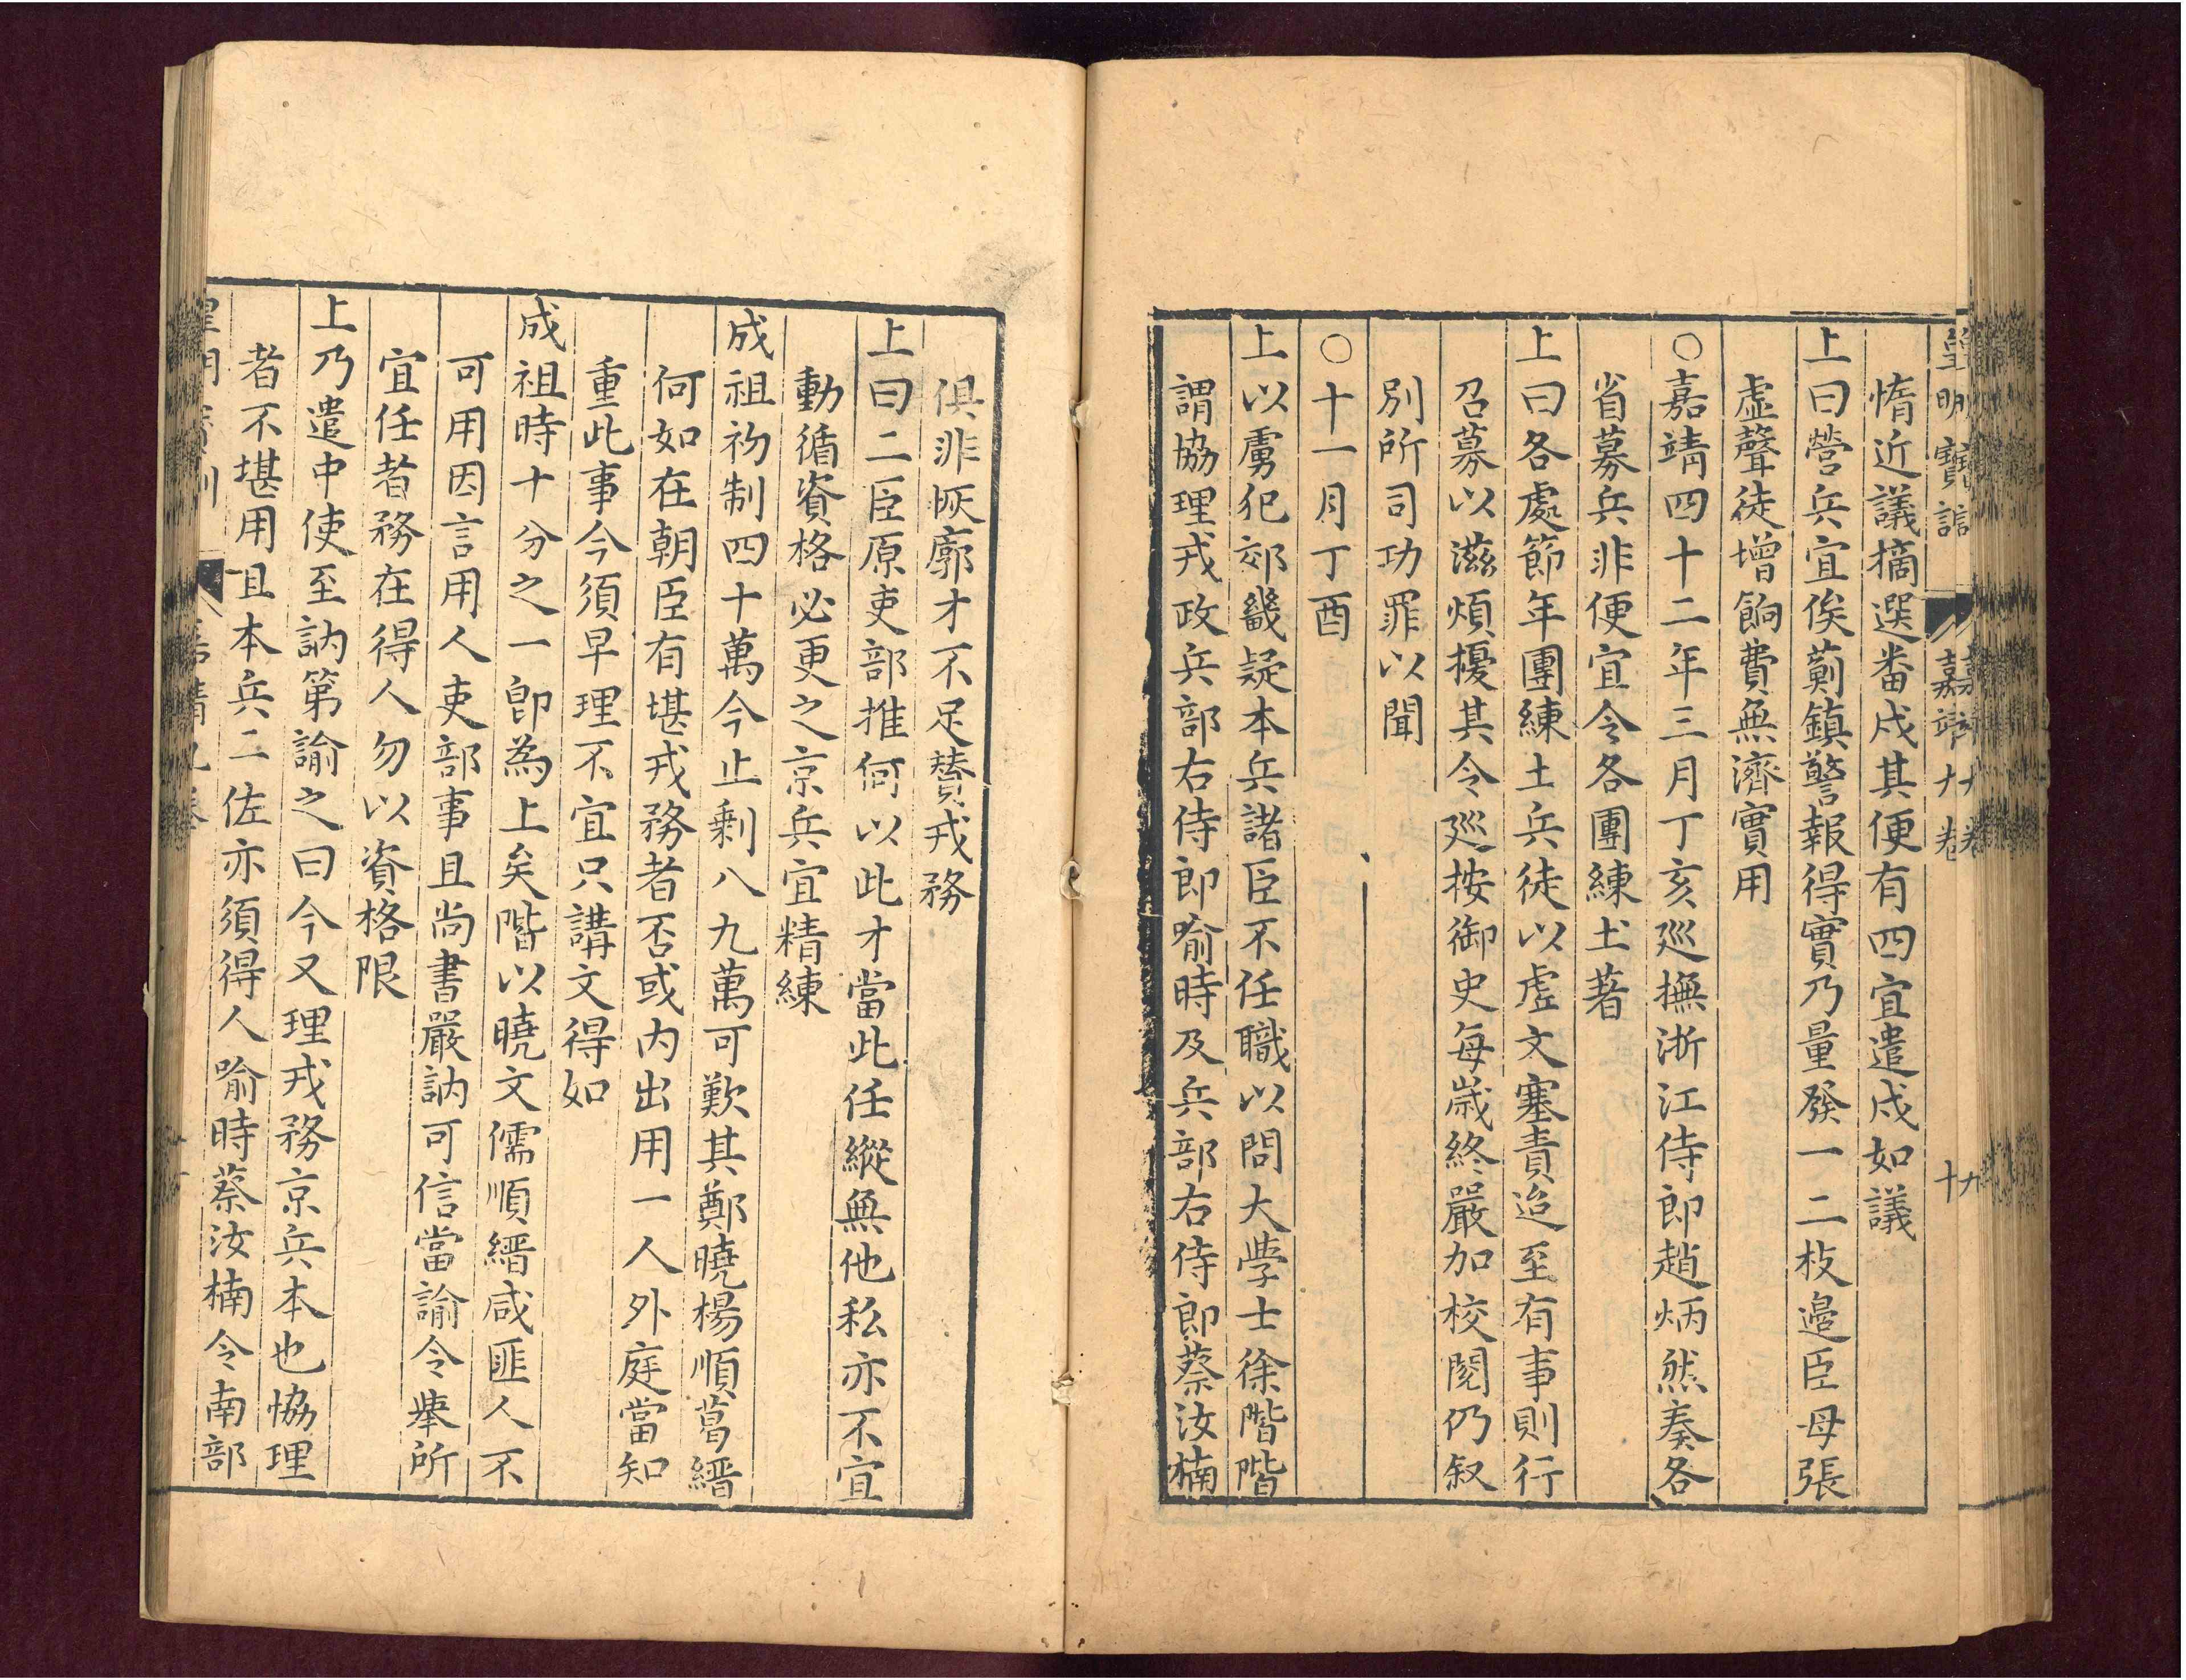 皇明寶訓 嘉靖九卷 十九
惰近議摘選番戍其便有四宜遣戍如議
上曰營兵宜俟薊鎮警報得實乃量發一二枝邉臣毋張
虛聲徒增餉費無濟實用
○嘉靖四十二年三月丁亥廵撫浙江侍郎趙炳然奏各
省募兵非便宜令各團練土著
上曰各處節年團練土兵徒以虛文塞責迨至有事則行
召募以滋煩擾其令廵按御史每歲終嚴加校閱仍叙
別所司功罪以聞
○十一月丁酉
上以虜犯郊畿疑本兵諸臣不任職以問大學士徐階階
謂協理戎政兵部右侍郎喻時及兵部右侍郎蔡汝楠
俱非恢廓才不足賛戎務
上曰二臣原吏部推何以此才當此任縱無他私亦不宜
動循資格必更之京兵宜精練
成祖初制四十萬今止剩八九萬可歎其鄭曉楊順葛縉
何如在朝臣有堪戎務者否或内出用一人外庭當知
重此事今須早理不宜只講文得如
成祖時十分之一卽為上矣階以曉文儒順縉咸匪人不
可用因言用人吏部事且尚書嚴訥可信當諭令舉所
宜任者務在得人勿以資格限
上乃遣中使至訥第諭之曰今又理戎務京兵本也恊理
者不堪用且本兵二佐亦須得人喻時蔡汝楠令南部